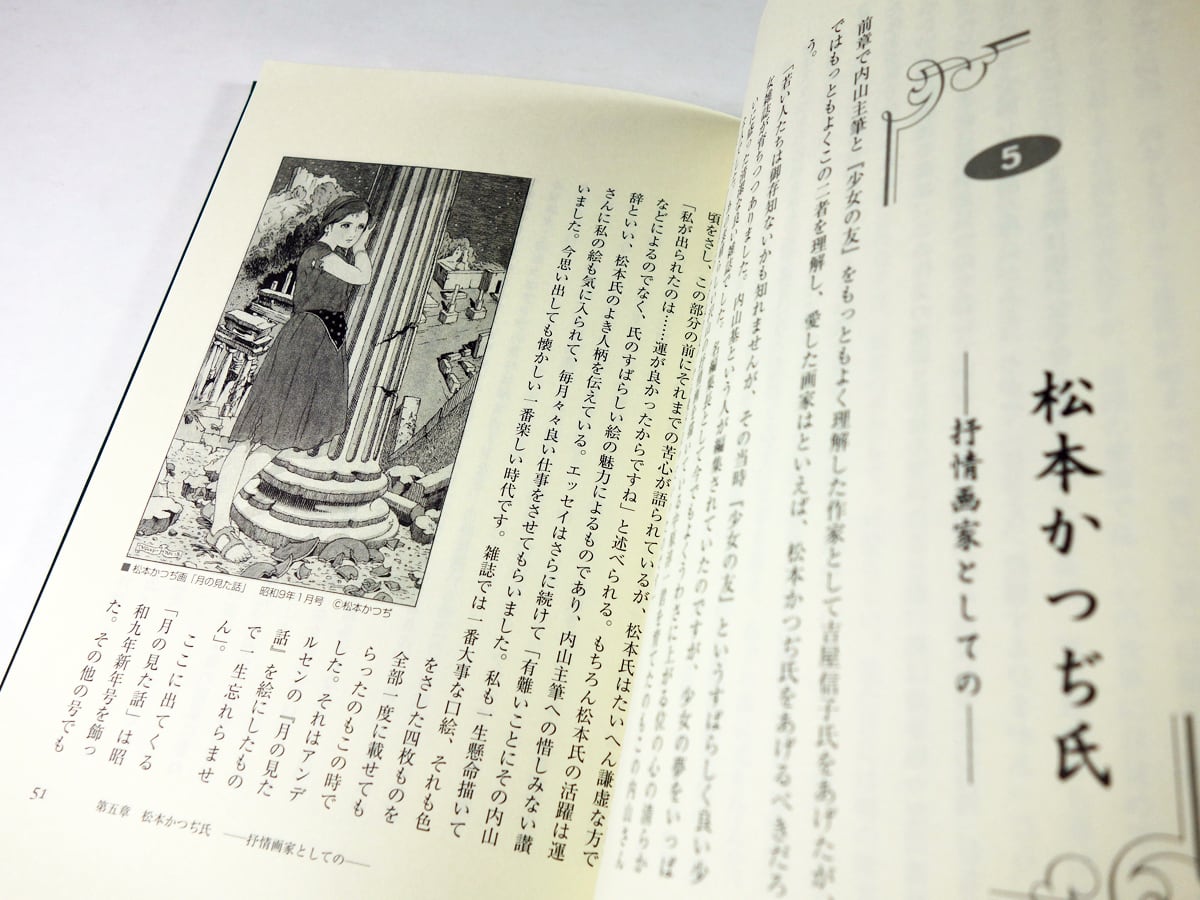 5
松本かつぢ氏
――抒情画家としての――
前章で内山主筆と『少女の友』をもっともよく理解した作家として吉屋信子氏をあげたが、
ではもっともよくこの二者を理解し、愛した画家はといえば、松本かつぢ氏をあげるべきだろ
う。
「若い人たちは御存知ないかも知れませんが、その当時『少女の友』というすばらしく良い少
女雑誌が育ちつつありました。内山基という人が編集されていたのですが、少女の夢をいっぱ
頃をさし、この部分の前にそれまでの苦心が語られているが、松本氏はたいへん謙虚な方で
「私が出られたのは……運が良かったからですね」と述べられる。もちろん松本氏の活躍は運
などによるのでなく、氏のすばらしい絵の魅力によるものであり、内山主筆への惜しみない讃
辞といい、松本氏のよき人柄を伝えている。エッセイはさらに続けて「有難いことにその内山
さんに私の絵も気に入られて、毎月々々良い仕事をさせてもらいました。私も一生懸命描いて
いました。今思い出しても懐かしい一番楽しい時代です。雑誌では一番大事な口絵、それも色
をさした四枚ものを
全部一度に載せても
らったのもこの時で
した。それはアンデ
ルセンの『月の見た
話』を絵にしたもの
で一生忘れられませ
ん」。
ここに出てくる
「月の見た話」は昭
和九年新年号を飾っ
た。その他の号でも
■松本かつぢ画「月の見た話」 昭和9年1月号 ©松本かつぢ
51
第五章 松本かつぢ氏 ――抒情画家としての――